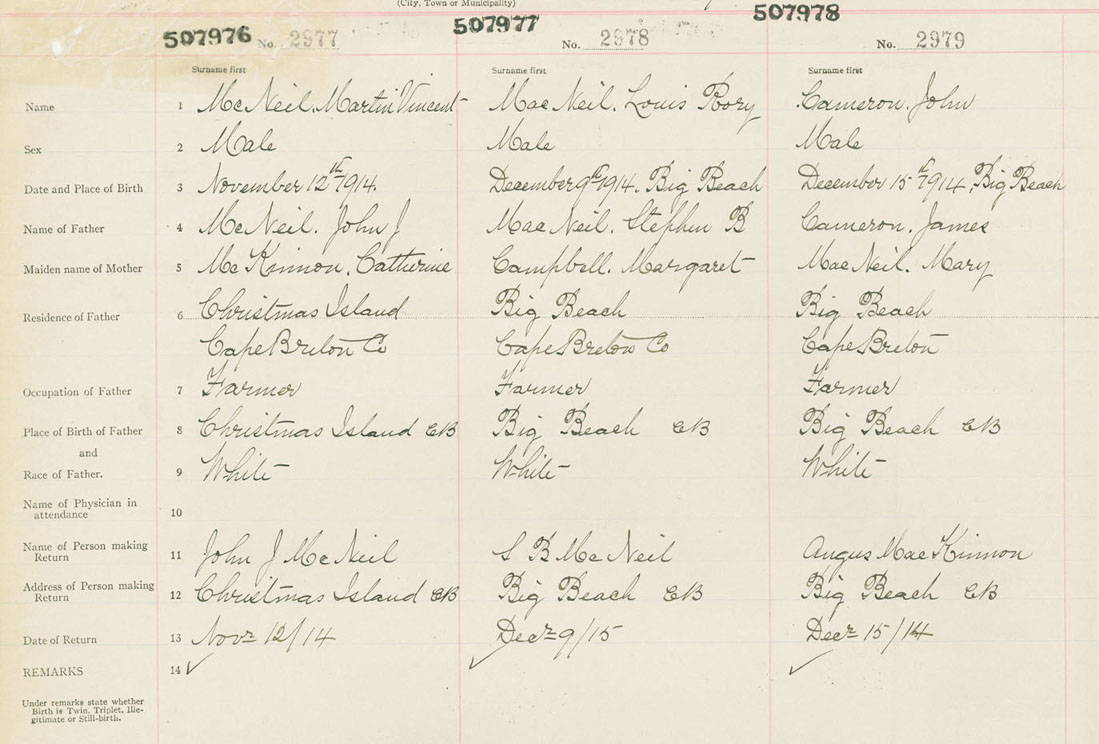 (City, Town or Municipality)
507976 No. 2977 507977 No. 2978 507978 No. 2979
Surname first Surname first Surname first
Name 1 McNeil. Martin Vincent MacNeil. Louis Rory Cameron. John
Sex 2 Male Male Male
Date and Place of Birth 3 November 12th 1914. December 9th 1914. Big Beach December 15th 1914, Big Beach
Name of Father 4 McNeil. John J MacNeil. Stephen B Cameron. James
Maiden name of Mother 5 McKinnon. Catherine Campbell. Margaret MacNeil. Mary
Residence of Father 6 Christmas Island Big Beach Big Beach
Cape Breton Co Cape Breton Co Cape Breton
Occupation of Father 7 Farmer Farmer Farmer
Place of Birth of Father 8 Christmas Island CB Big Beach CB Big Beach CB
and
Race of Father. 9 White White White
Name of Physician in
attendance 10
Name of Person making
Return 11 John J McNeil S B McNeil Angus MacKinnon
Address of Person making
Return 12 Christmas Island CB Big Beach CB Big Beach CB
Date of Return 13 Novr 12/14 Decr 9/15 Decr 15/14
REMARKS 14 ✓ ✓ ✓
Under remarks state whether
Birth is Twin, Triplet, Ille-
gitimate or Still-birth.